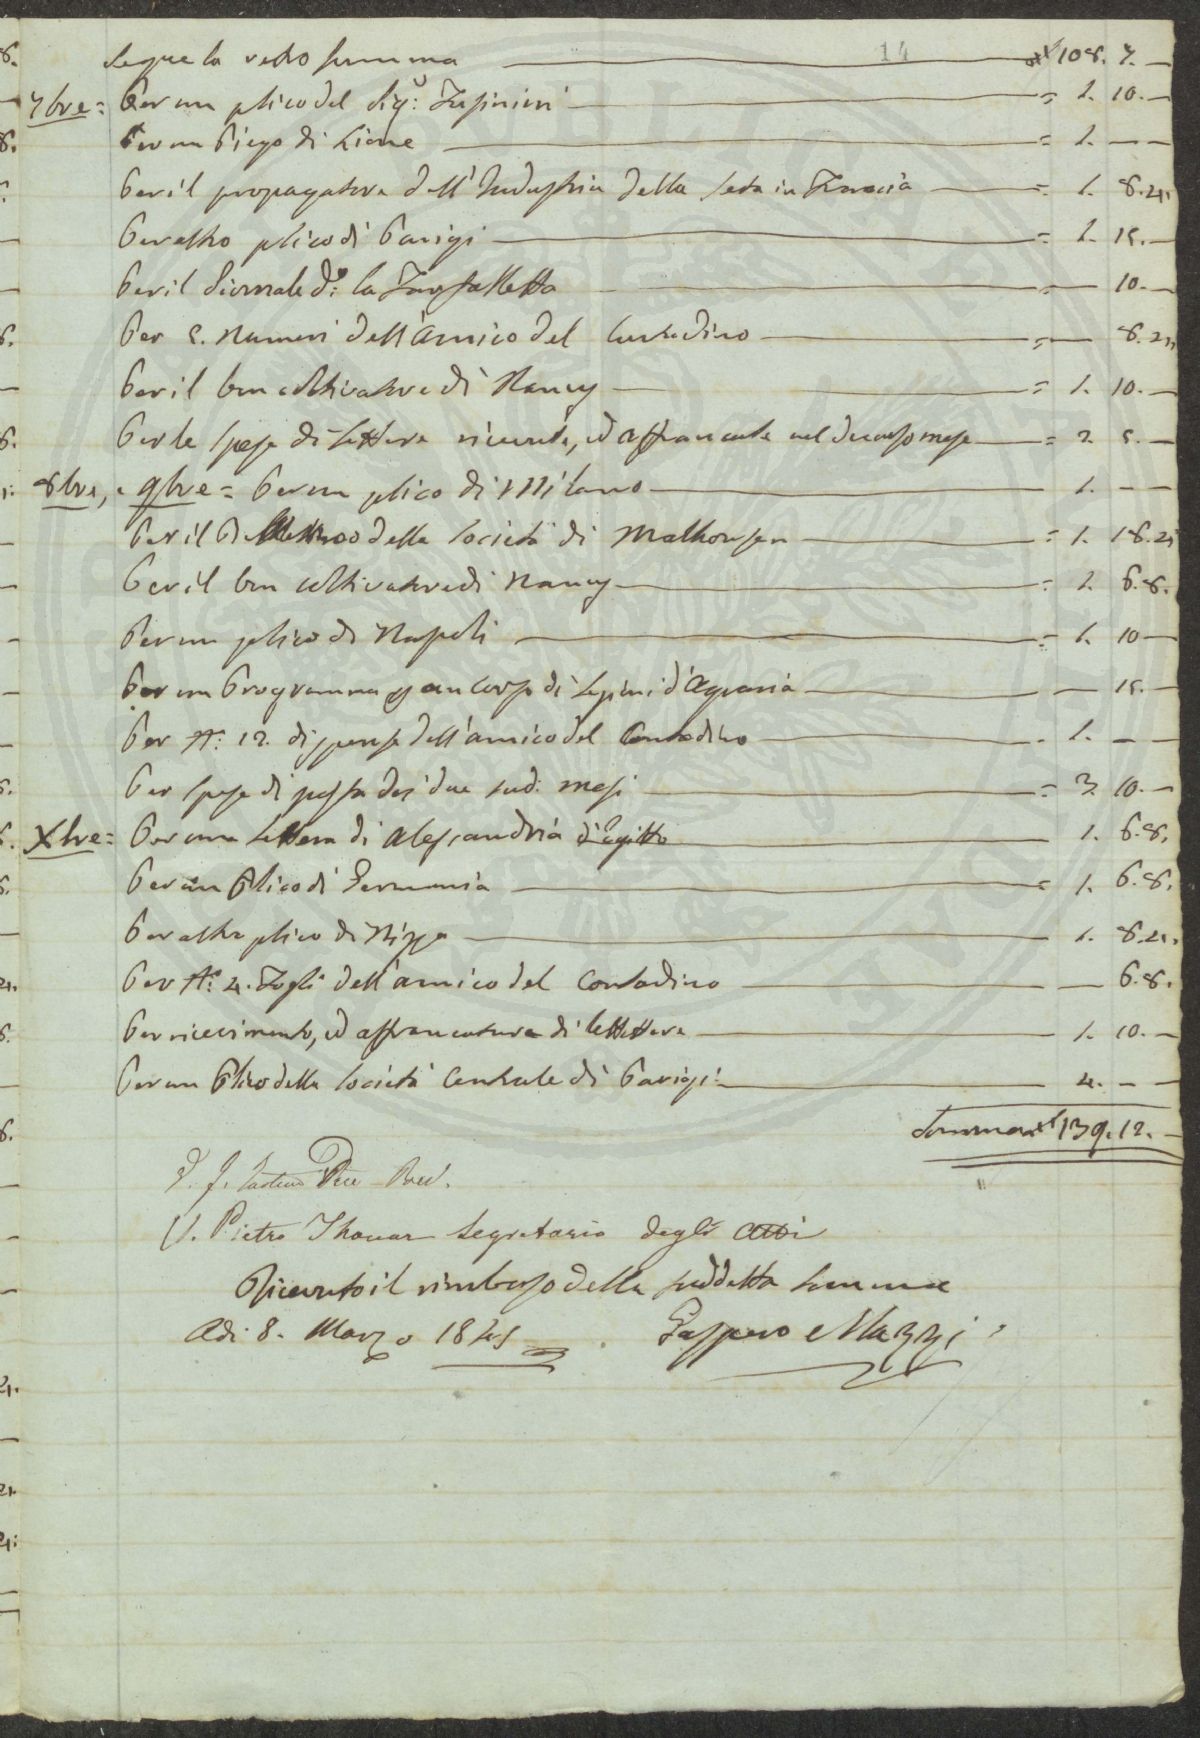 14
Segue la retro somma ££ 108. 7. —
7bre = Per un plico del Sig.r = 1. 10. —
Per un Piego di Lione = 1. — —
Per il propagatore dell'Industria della Seta in Francia = 1. 8. 4.
Per altro plico di Parigi = 1. 15. —
Per il Giornale d.o la Farfalletta = — 10. —
Per 5. Numeri dell'Amico del Contadino = — 8. 4.
Per il bon coltivatore di Nancy = 1. 10. —
Per le spese di lettere ricevute, ed affrancate nel decorso mese = 2. 5. —
8bre, e 9bre = Per un plico di Milano 1. — —
Per il Bullettino della Società di Malhousen = 1. 18. 4.
Per il bon coltivatore di Nancy = 1. 6. 8.
Per un plico di Napoli = 1. 10 —
Per un Programma p. un Corso di Lezioni d'Agraria — 15. —
Per N.o 12. dispense dell'amico del Contadino 1. — —
Per spese di posta dei due sud.i mesi = 3. 10. —
Xbre = Per una lettera di Alessandria d'Egitto 1. 6. 8.
Per un Plico di Germania = 1. 6. 8.
Per altro plico di Nizza 1. 8. 4.
Per N.o 4. Fogli dell'amico del Contadino — 6. 8.
Per ricevimento, ed affrancatura di lettere 1. 10. —
Per un Plico della Società Centrale di Parigi 4. — —
Somma ££ 139. 12. —
V. Pietro Thouar Segretario degli Atti
Ricevuto il rimborso della suddetta somma
Adì 8. Marzo 1845 Gaspero Mazzi